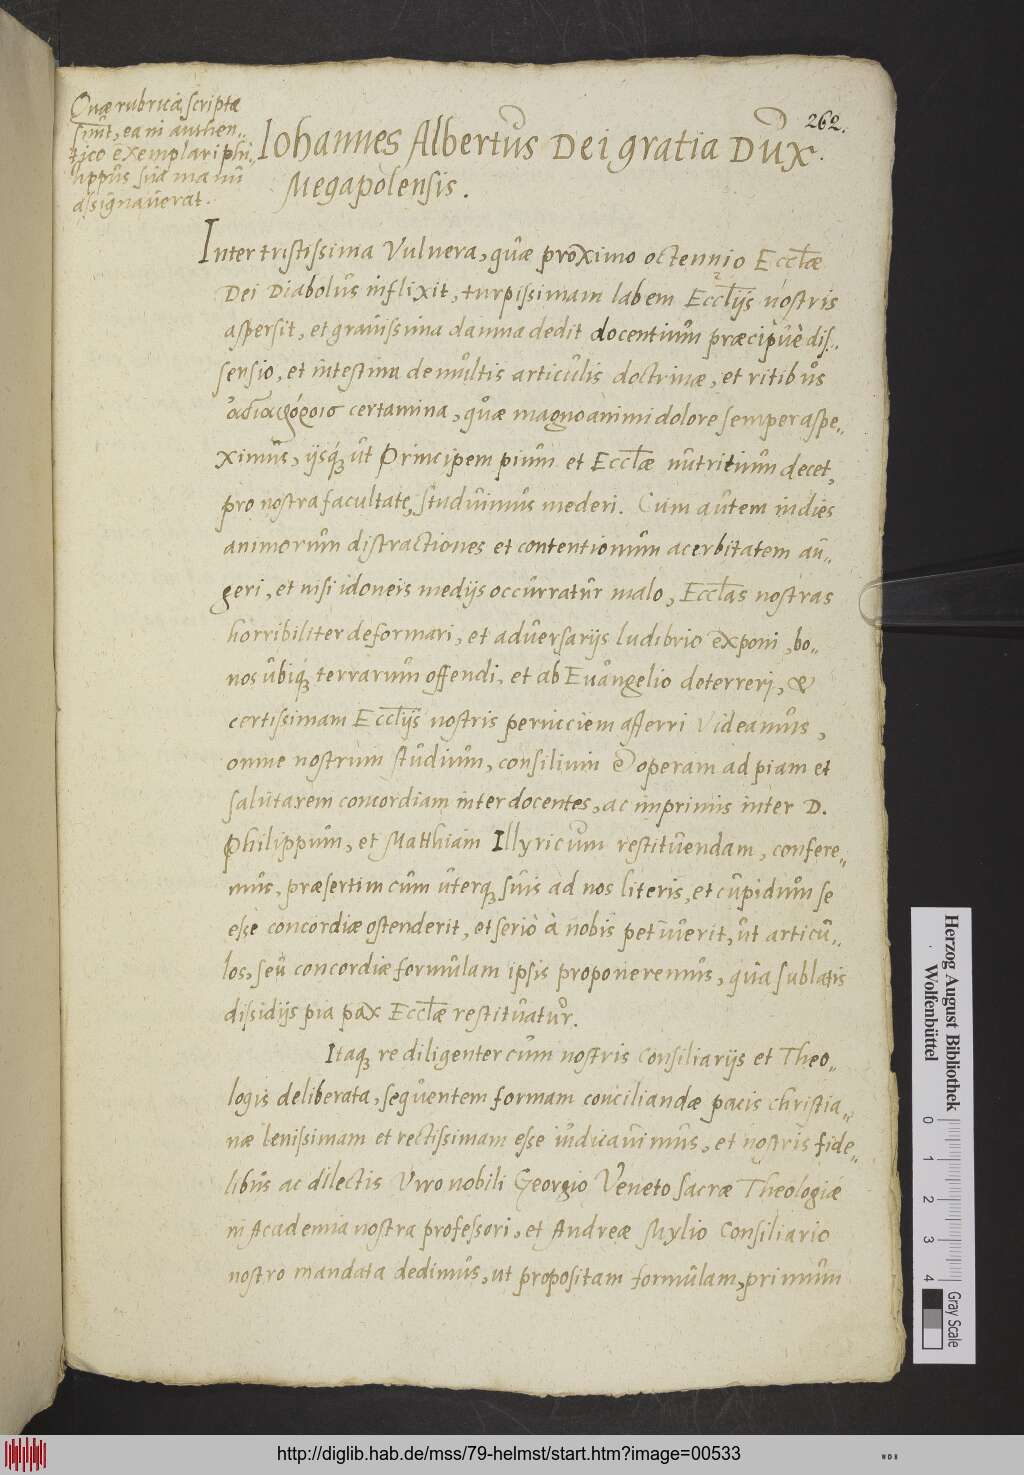 262.
Quæ rubrica scriptæ
sunt, ea in authen-
tico exemplari phi-
lippus sua manu
assignaverat.
Iohannes Albertus Dei gratia Dux
Megapolensis.
Inter tristissima Vulnera, quæ proximo octennio Ecclæ
Dei Diabolus inflixit, turpissimam labem Ecclijs nostris
aspersit, et gravissima damna dedit docentium præcipuè dis-
sensio, et intestina de multis articulis doctrinæ, et ritibus
ἀδιαφόροις certamina, quæ magno animi dolore semper aspe-
ximus, ijsq; ut Principem pium et Ecclæ nutritium decet,
pro nostra facultate, studuimus mederi. Cum autem indies
animorum distractiones et contentionum acerbitatem au-
geri, et nisi idoneis medijs occurratur malo, Ecclas nostras
horribiliter deformari, et adversarijs ludibrio exponi, bo-
nos ubiq; terrarum offendi, et ab Euangelio deterreri, &
certissimam Ecclijs nostris perniciem afferri Videamus,
omne nostrum studium, consilium & operam ad piam et
salutarem concordiam inter docentes, ac imprimis inter D.
Philippum, et Matthiam Illyricum restituendam, confere-
mus, præsertim cum uterq; suis ad nos literis, et cupidum se
esse concordiæ ostenderit, et seriò à nobis petiverit, ut articu-
los, seu concordiæ formulam ipsis proponeremus, qua sublatis
dissidijs pia pax Ecclæ restituatur.
Itaq; re diligenter cum nostris Consiliarijs et Theo-
logis deliberata, sequentem formam conciliandæ pacis christia-
næ lenissimam et rectissimam esse iudicavimus, et nostris fide-
libus ac dilectis Viro nobili Georgio Veneto sacræ Theologiæ
in Academia nostra professori, et Andreæ Mylio Consiliario
nostro mandata dedimus, ut propositam formulam, primum
Herzog August Bibliothek
Wolfenbüttel
0 1 2 3 4
Gray Scale
http://diglib.hab.de/mss/79-helmst/start.htm?image=00533